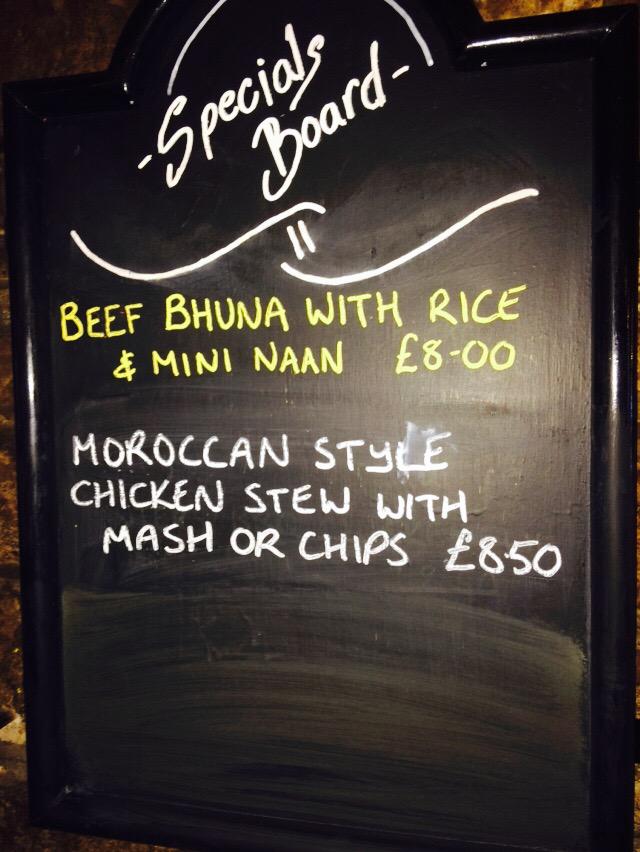 -Specials
Board-
BEEF BHUNA WITH RICE
& MINI NAAN £8-00
MOROCCAN STYLE
CHICKEN STEW WITH
MASH OR CHIPS £8.50